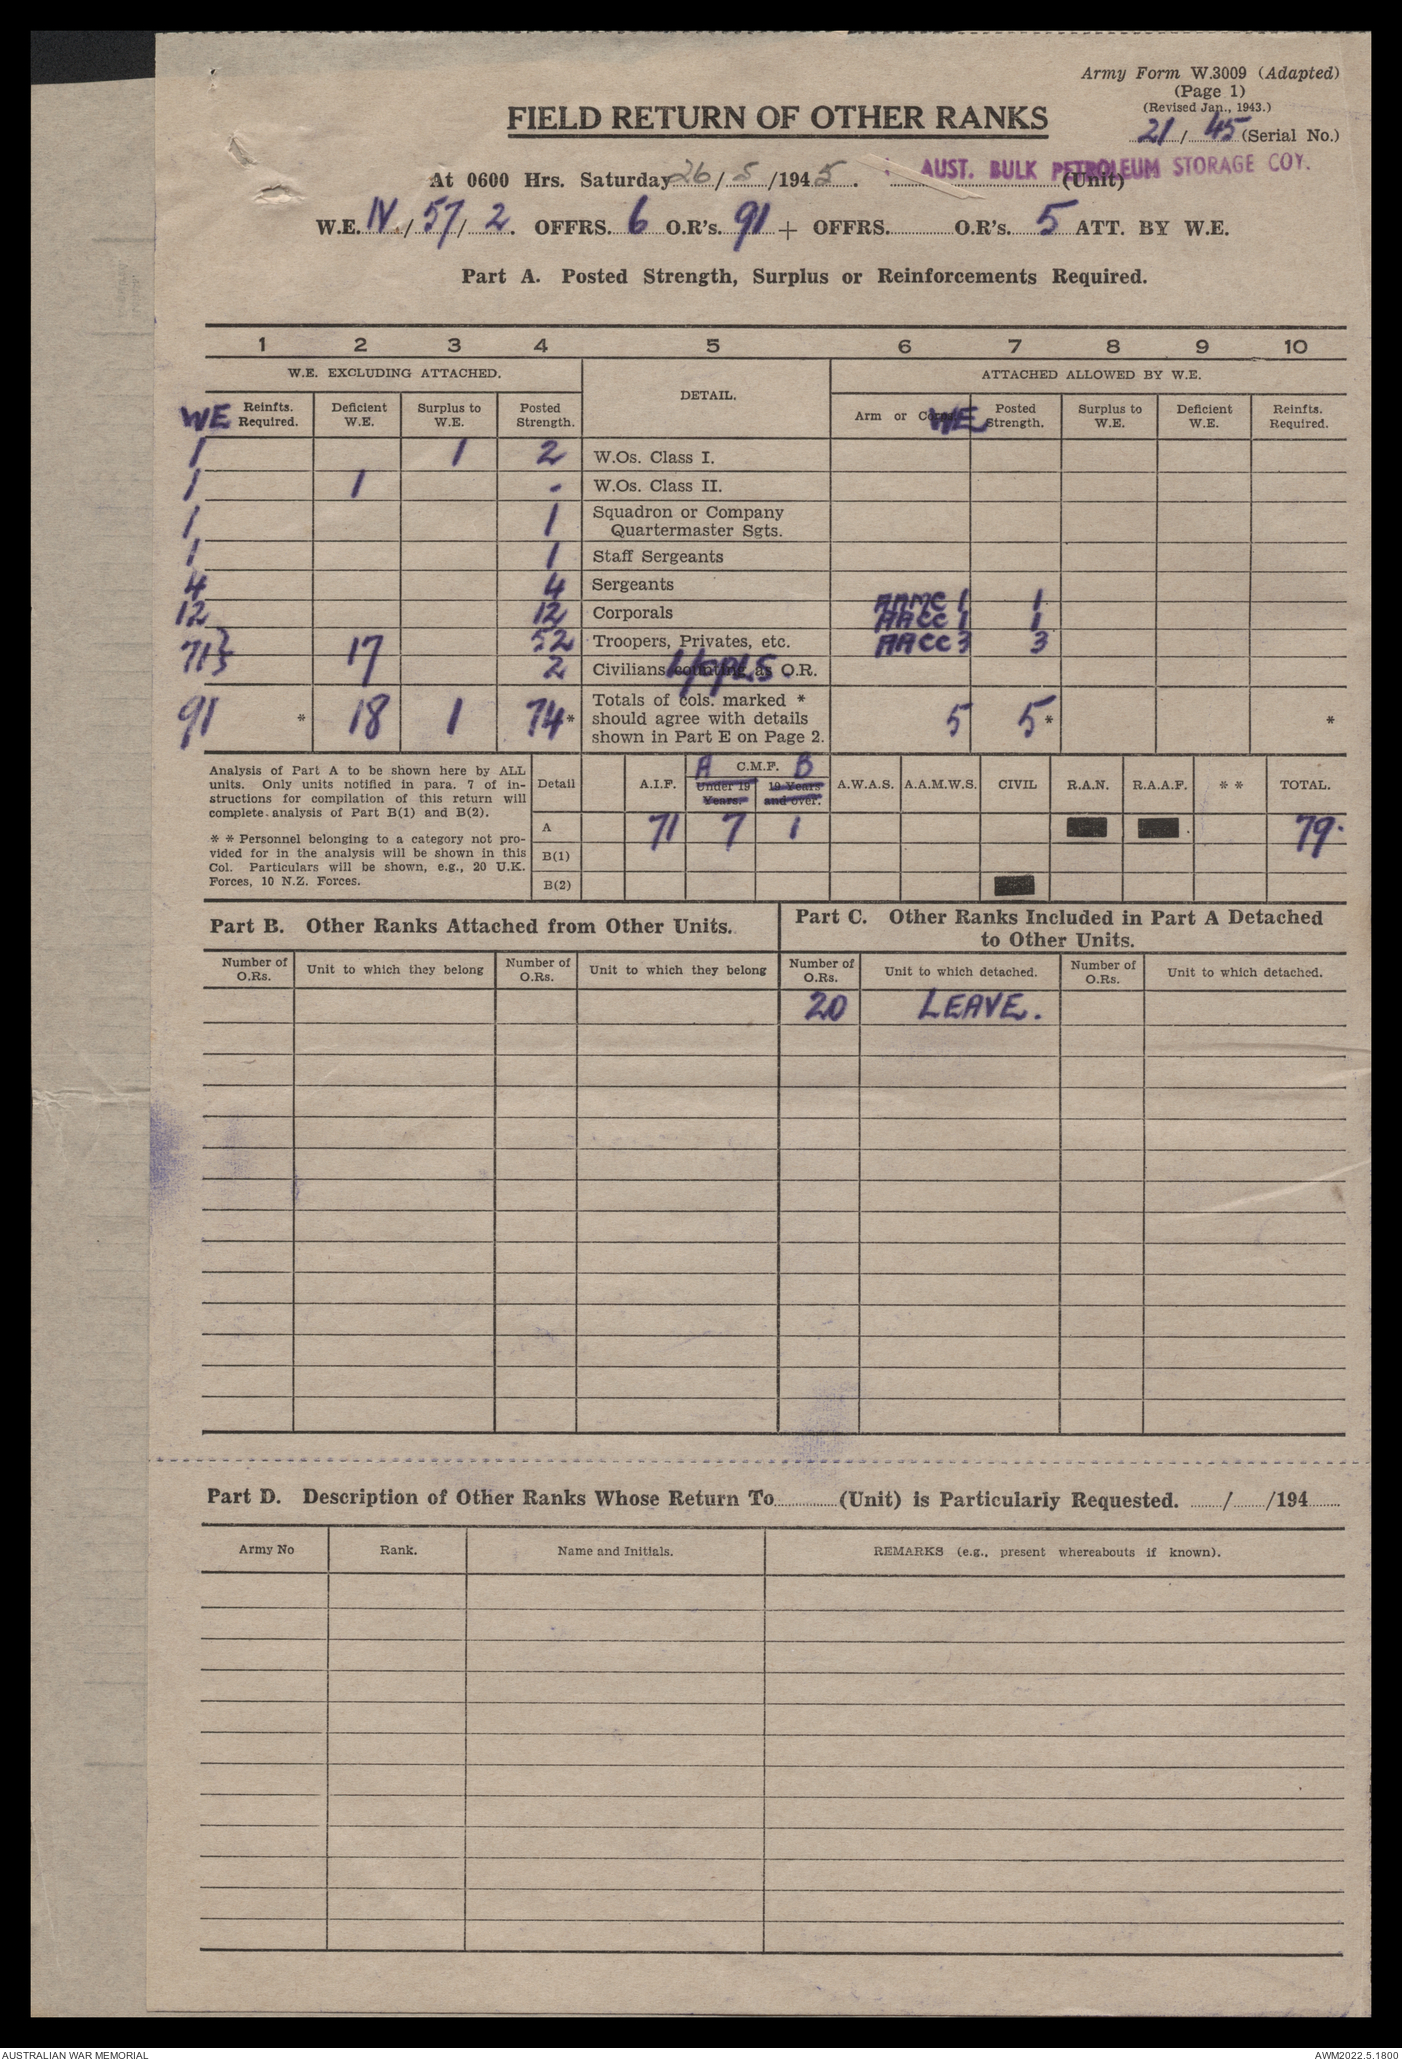 Army Form W.3009 (Adapted)
(Page 1)
(Revised Jan., 1943.)
FIELD RETURN OF OTHER RANKS
21 / 45 (Serial No.)
At 0600 Hrs. Saturday 26 / 5 /1945. AUST. BULK PETROLEUM STORAGE COY. (Unit)
W.E. IV / 57 / 2. OFFRS. 6 O.R's. 91 + OFFRS. O.R's. 5 ATT. BY W.E.
Part A. Posted Strength, Surplus or Reinforcements Required.
1 2 3 4 5 6 7 8 9 10
W.E. EXCLUDING ATTACHED. DETAIL. ATTACHED ALLOWED BY W.E.
WE Reinfts. Required. Deficient W.E. Surplus to W.E. Posted Strength. Arm or Corps WE Posted Strength. Surplus to W.E. Deficient W.E. Reinfts. Required.
1 1 2 W.Os. Class I.
1 1 - W.Os. Class II.
1 1 Squadron or Company Quartermaster Sgts.
1 1 Staff Sergeants
4 4 Sergeants
12 12 Corporals AAMC 1 1
AACC 1 1
71} 17 52 Troopers, Privates, etc. AACC 3 3
2 Civilians counting as O.R. L/CPLS.
91 * 18 1 74* Totals of cols. marked * should agree with details shown in Part E on Page 2. 5 5* *
Analysis of Part A to be shown here by ALL
units. Only units notified in para. 7 of in-
structions for compilation of this return will
complete analysis of Part B(1) and B(2).
* * Personnel belonging to a category not pro-
vided for in the analysis will be shown in this
Col. Particulars will be shown, e.g., 20 U.K.
Forces, 10 N.Z. Forces.
Detail A.I.F. A C.M.F. B A.W.A.S. A.A.M.W.S. CIVIL R.A.N. R.A.A.F. * * TOTAL.
Under 19 Years. 19 Years and over.
A 71 7 1 79.
B(1)
B(2)
Part B. Other Ranks Attached from Other Units.
Part C. Other Ranks Included in Part A Detached
to Other Units.
Number of O.Rs. Unit to which they belong Number of O.Rs. Unit to which they belong Number of O.Rs. Unit to which detached. Number of O.Rs. Unit to which detached.
20 LEAVE.
Part D. Description of Other Ranks Whose Return To (Unit) is Particularly Requested. / /194
Army No Rank. Name and Initials. REMARKS (e.g., present whereabouts if known).
AUSTRALIAN WAR MEMORIAL AWM2022.5.1800